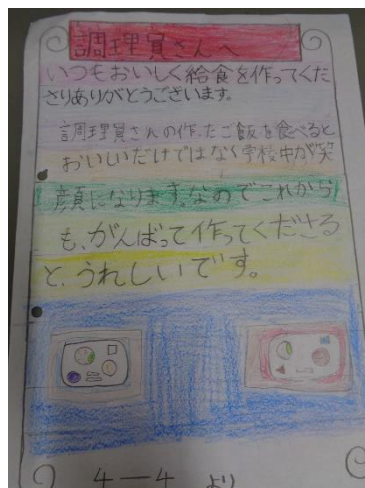 調理員さんへ
いつもおいしく給食を作ってくだ
さりありがとうございます。
調理員さんの作ったご飯を食べると
おいしいだけではなく学校中が笑
顔になります。なのでこれから
も、がんばって作ってくださる
と、うれしいです。
4―4 より